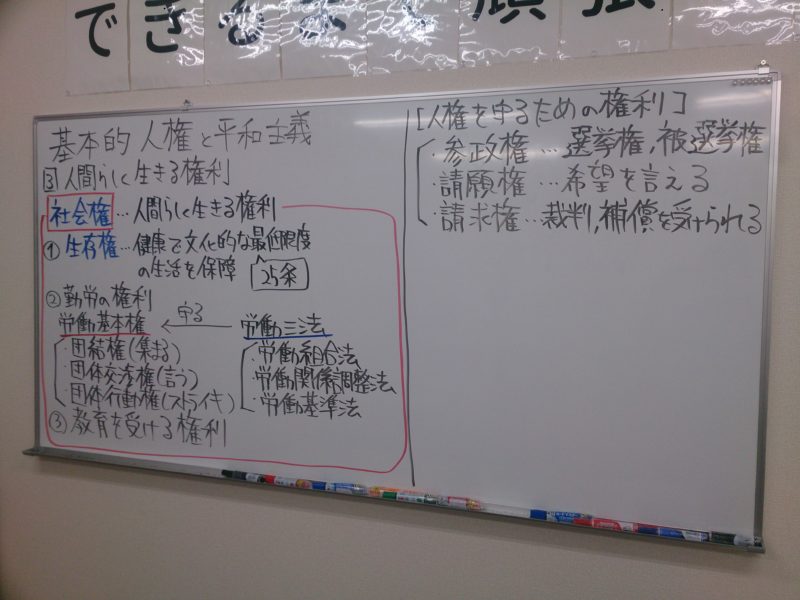 できるまで頑張
基本的人権と平和主義
③人間らしく生きる権利
社会権…人間らしく生きる権利
①生存権…健康で文化的な最低限度
の生活を保障 25条
②勤労の権利
労働基本権 ← 守る 労働三法
・団結権(集まる)
・団体交渉権(言う)
・団体行動権(ストライキ)
・労働組合法
・労働関係調整法
・労働基準法
③教育を受ける権利
[人権を守るための権利]
・参政権…選挙権,被選挙権
・請願権…希望を言える
・請求権…裁判,補償を受けられる